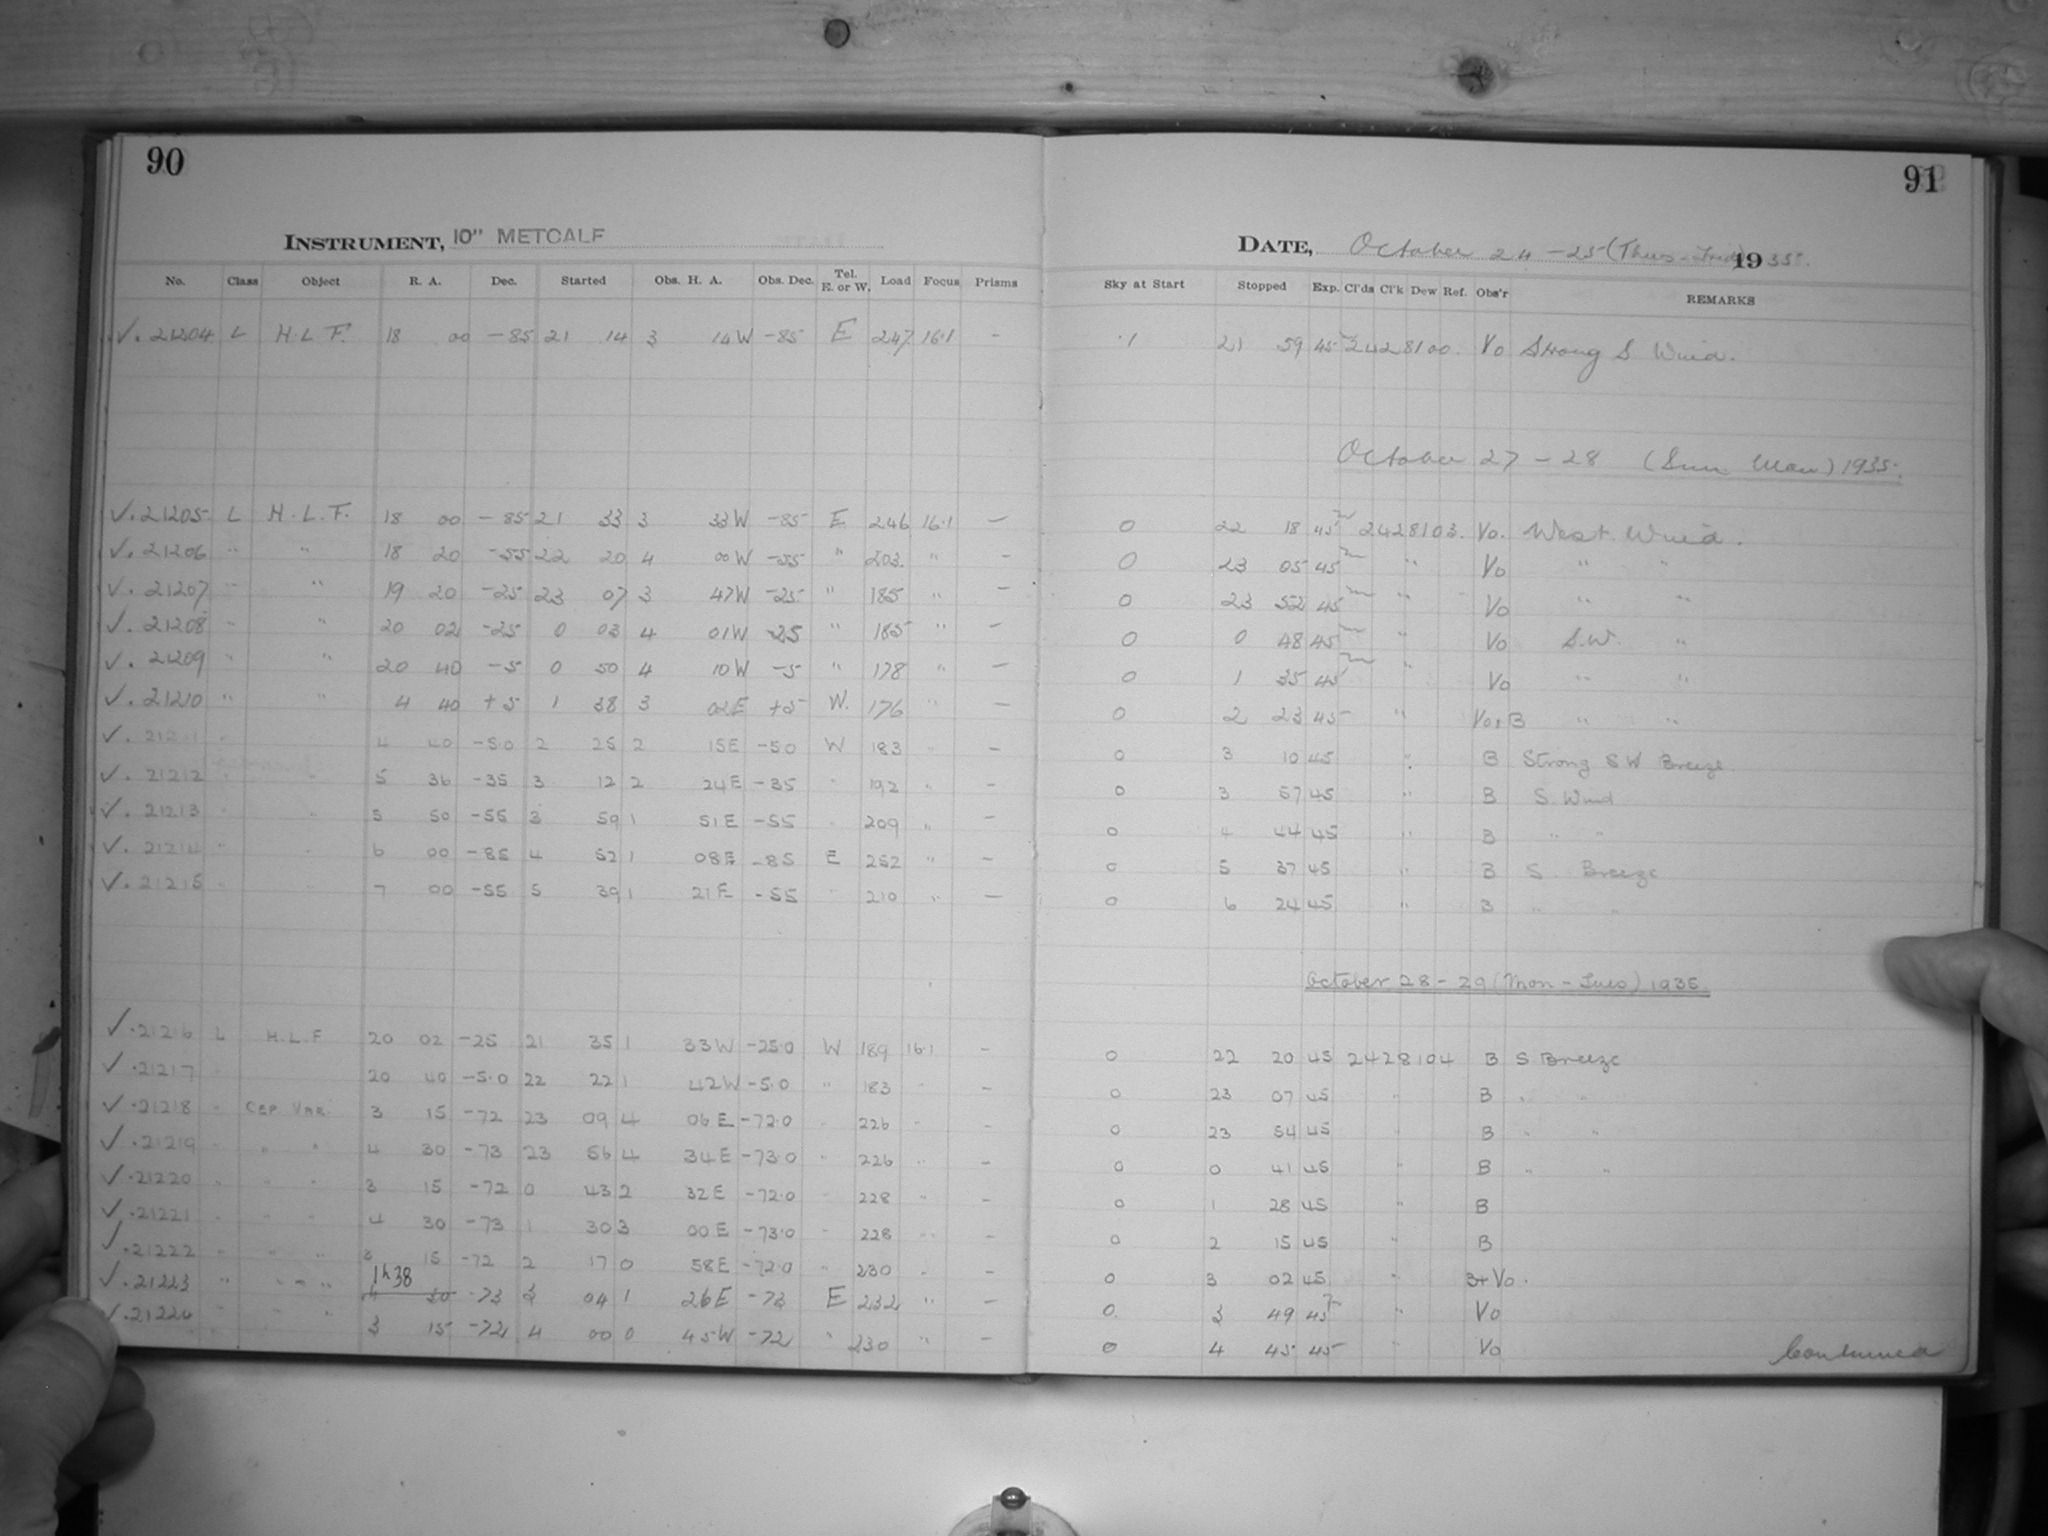 90
91
INSTRUMENT, 10" METCALF
DATE, October 24 - 25 (Thurs - Frid) 1935.
No. Class Object R. A. Dec. Started Obs. H. A. Obs. Dec. Tel. E. or W. Load Focus Prisms Sky at Start Stopped Exp. Cl'ds Cl'k Dew Ref. Obs'r REMARKS
✓. 21204 L H.L.F. 18 00 -85 21 14 3 14 W -85 E 247 16.1 - .1 21 59 45 2428100. Vo Strong S Wind.
October 27 - 28 (Sun Mon) 1935.
✓. 21205 L H.L.F. 18 00 -85 21 33 3 33 W -85 E 246 16.1 - 0 22 18 45 2428103. Vo. West Wind.
✓. 21206 " " 18 20 -55 22 20 4 00 W -55 " 203. " - 0 23 05 45 " Vo " "
✓. 21207 " " 19 20 -25 23 07 3 47 W -25 " 185 " - 0 23 52 45 " Vo " "
✓. 21208 " " 20 02 -25 0 03 4 01 W -25 " 185 " - 0 0 48 45 " Vo S.W. "
✓. 21209 " " 20 40 -5 0 50 4 10 W -5 " 178 " - 0 1 35 45 " Vo " "
✓. 21210 " " 4 40 +5 1 38 3 02 E +5 W. 176 " - 0 2 23 45 " Vo + B " "
✓. 21211 " 4 40 -5.0 2 25 2 15 E -5.0 W 183 " - 0 3 10 45 " B Strong S W Breeze
✓. 21212 " " 5 36 -35 3 12 2 24 E -35 " 192 " - 0 3 57 45 " B S. Wind
✓. 21213 " " 5 50 -55 3 59 1 51 E -55 " 209 " - 0 4 44 45 " B " "
✓. 21214 " " 6 00 -85 4 52 1 08 E -85 E 252 " - 0 5 37 45 " B S. Breeze
✓. 21215 " " 7 00 -55 5 39 1 21 E -55 " 210 " - 0 6 24 45 " B " "
October 28 - 29 (Mon - Tues) 1935
✓. 21216 L H.L.F 20 02 -25 21 35 1 33 W -25.0 W 189 16.1 - 0 22 20 45 2428104 B S Breeze
✓. 21217 20 40 -5.0 22 22 1 42 W -5.0 " 183 " - 0 23 07 45 " B " "
✓. 21218 " CEP. VAR. 3 15 -72 23 09 4 06 E -72.0 " 226 " - 0 23 54 45 " B " "
✓. 21219 " " " 4 30 -73 23 56 4 34 E -73.0 " 226 " - 0 0 41 45 " B " "
✓. 21220 " " " 3 15 -72 0 43 2 32 E -72.0 " 228 " - 0 1 28 45 " B
✓. 21221 " " " 4 30 -73 1 30 3 00 E -73.0 " 228 " - 0 2 15 45 " B
✓. 21222 " " " 3 15 -72 2 17 0 58 E -72.0 " 230 " - 0 3 02 45 " B + Vo.
1h 38
✓. 21223 " " " 4 30 -73 3 04 1 26 E -73 E 232 " - 0. 3 49 45 " Vo
✓. 21224 " " " 3 15 -72 4 00 0 45 W -72 " 230 " - 0 4 45 45 " Vo
Continued